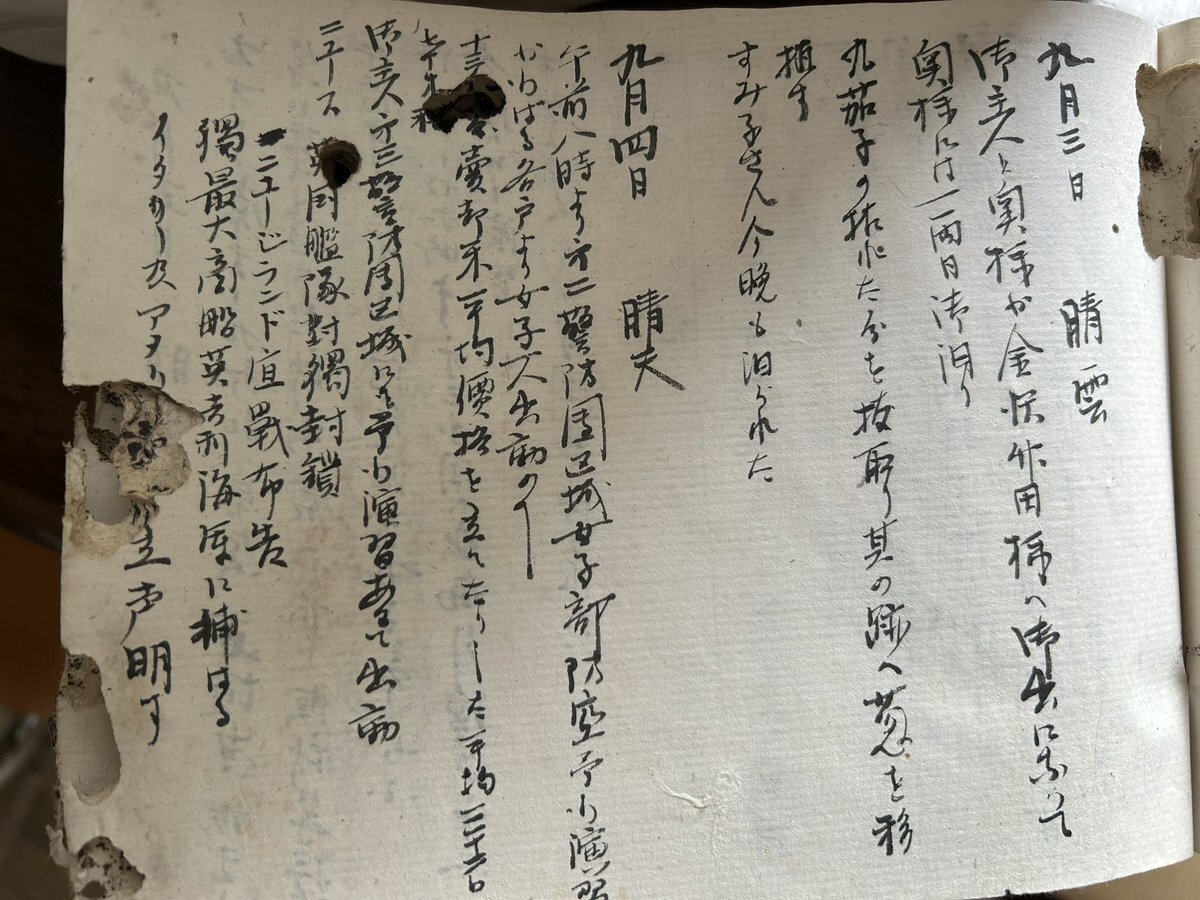 九月三日 晴雲
御主人と奥様が金沢作田様へ御出になつて
奥様には一両日御泊り
丸茄子の枯れた分を抜取り其の跡へ葱を移
植す
すみ子さん今晩も泊られた
九月四日 晴天
午前八時より方二警防団区域女子部防空予行演習
がわばる各戸より女子一人出動の
賣却米平均價格を立てたりした平均三十六
御主人方三警防団区域にも予行演習あつて出動
ニユース 英国艦隊對獨封鎖
ニユージランド宣戰布告
獨最大商船英吉利海軍に捕はる
イタ
立声明す